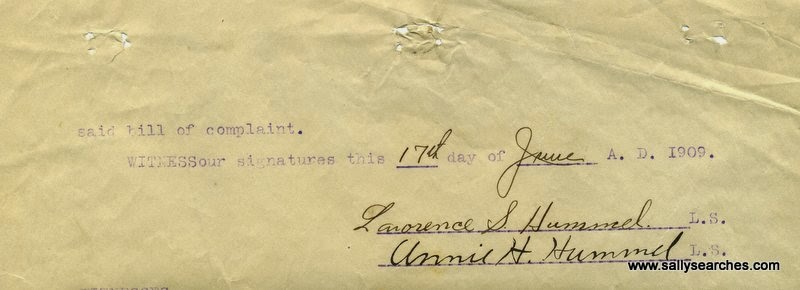 said bill of complaint.
WITNESSour signatures this 17th day of June A. D. 1909.
Lawrence S. Hummel. L.S.
Annie H. Hummel L.S.
www.sallysearches.com
WITNESSES